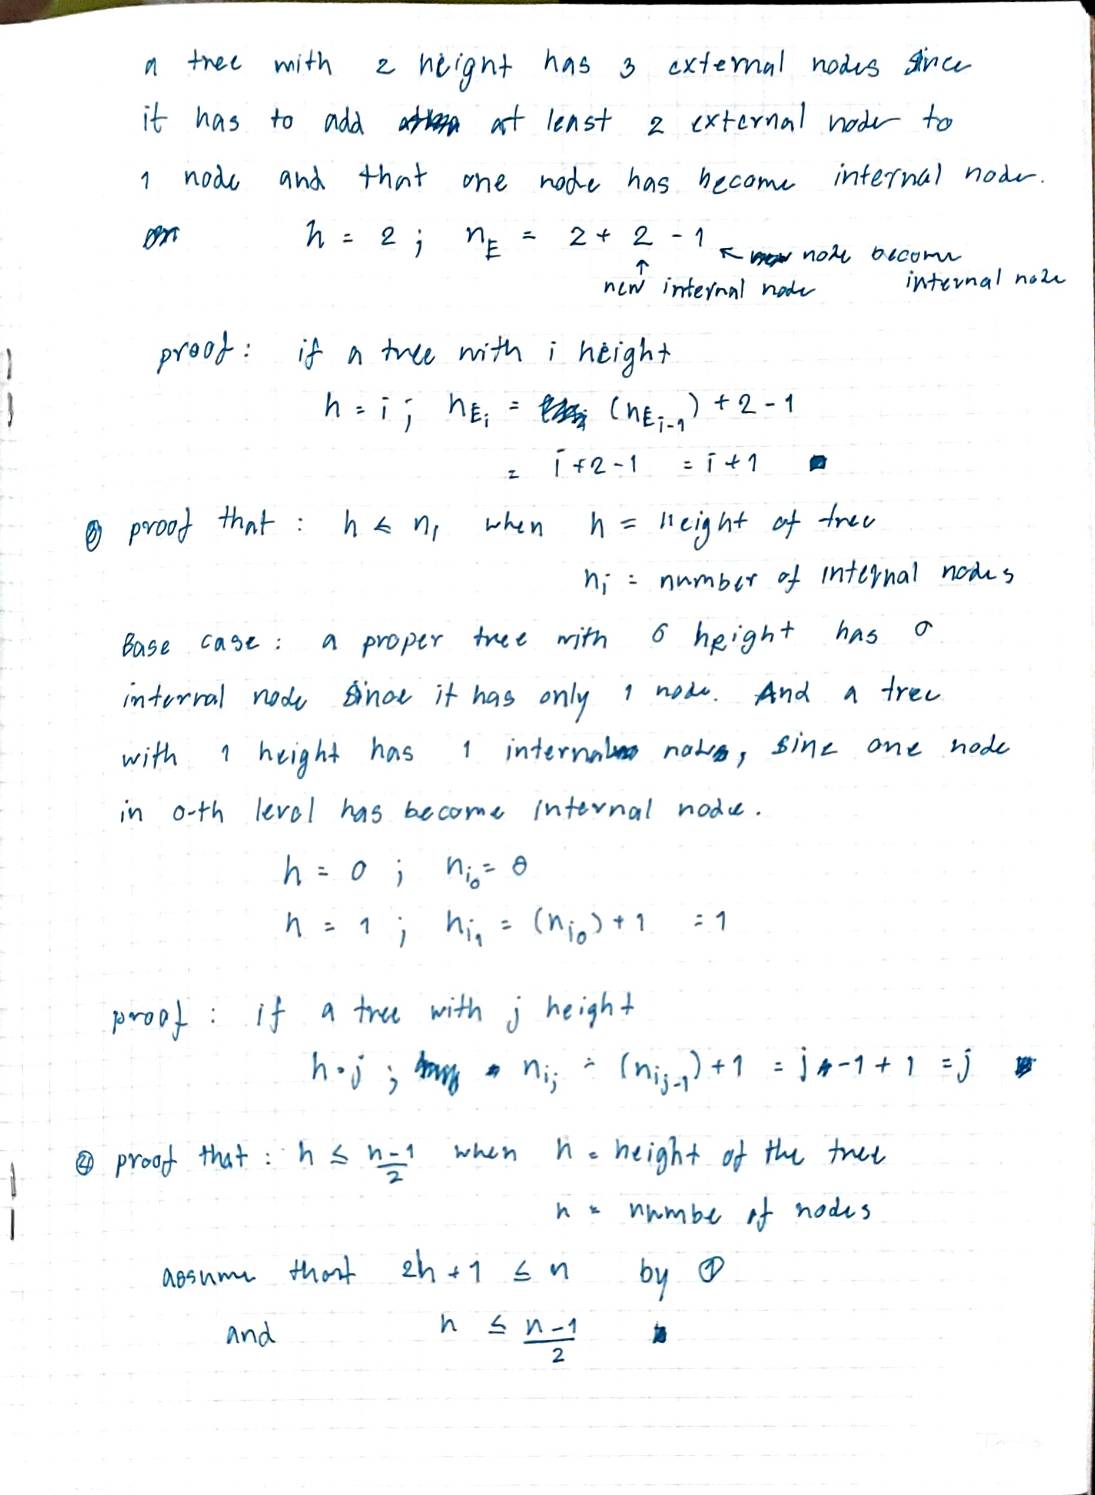 a tree with 2 height has 3 external nodes since
it has to add at least 2 external node to
1 node and that one node has become internal node.
h = 2 ; nE = 2 + 2 - 1 ← node become
↑
new internal node internal node
proof : if a tree with i height
h = i ; nEi = (nEi-1) + 2 - 1
= i + 2 - 1 = i + 1 ■
③ proof that : h ≤ ni when h = height of tree
ni = number of internal nodes
Base case : a proper tree with 0 height has 0
internal node since it has only 1 node. And a tree
with 1 height has 1 internal nodes, sine one node
in 0-th level has become internal node.
h = 0 ; ni0 = 0
h = 1 ; ni1 = (ni0) + 1 = 1
proof : if a tree with j height
h = j ; nij = (nij-1) + 1 = j - 1 + 1 = j ■
④ proof that : h ≤ n-1/2 when h = height of the tree
n = numbe of nodes
assume that 2h + 1 ≤ n by ①
and h ≤ n-1/2 ■